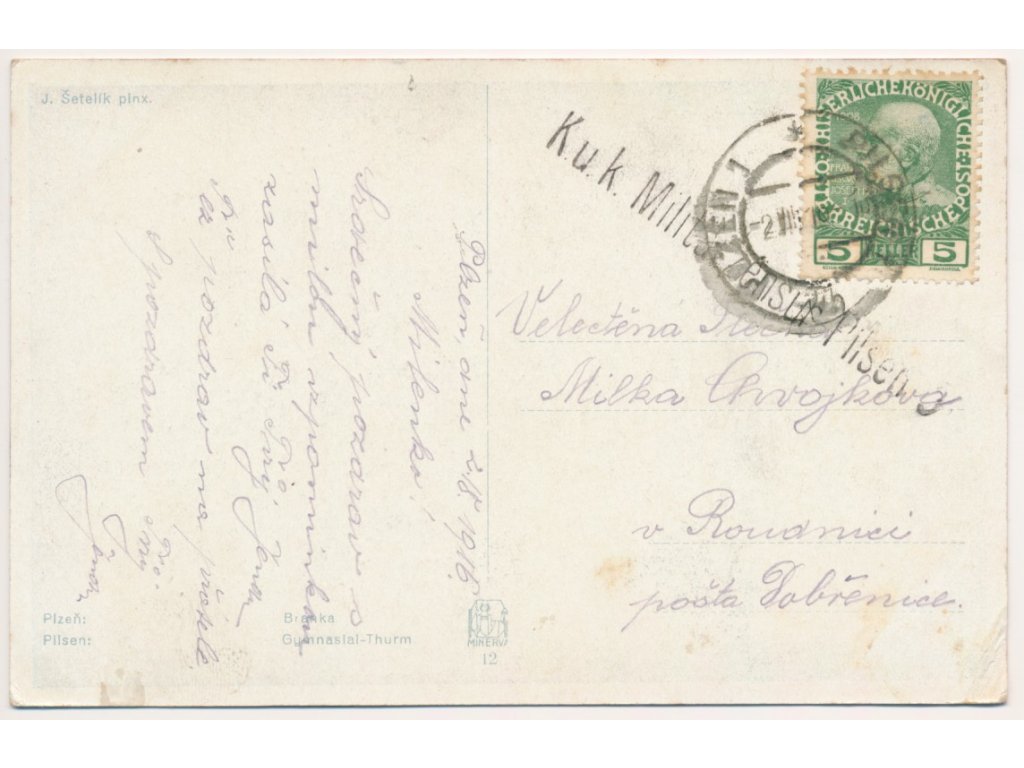 J. Šetelík pinx.
Plzeň, dne 2/8. 1916.
Milenko!
Srdečný pozdrav s
milou vzpomínkou
zasílá Ti Tvůj
Jenda
Tvé
až pozdrav na přátelé
S pozdravem Tvůj
Jenda
Plzeň: Branka
Pilsen: Gymnasial-Thurm
MINERVA
12
K.u.k. Milit
Pilsen
KAISERLICHE KÖNIGLICHE
ÖSTERREICHISCHE POST
5 HELLER 5
PILSEN
PLZEŇ 1
Velectěná Slečna
Milka Chvojkova
v Roudnici
pošta Dobřenice.